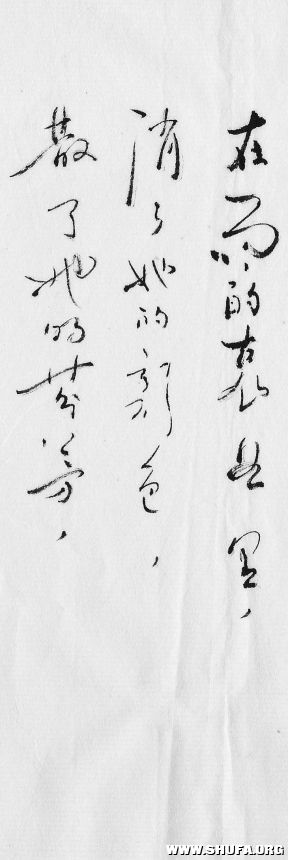 在雨的哀曲里，
消了她的颜色，
散了她的芬芳，
WWW.SHUFA.ORG